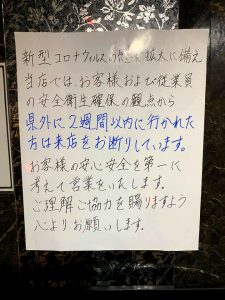 新型コロナウィルスの感染拡大に備え
当店では、お客様および従業員
の安全衛生確保の観点から
県外に2週間以内に行かれた
方は来店をお断りしています。
お客様の安心安全を第一に
考えて営業をいたします。
ご理解ご協力を賜りますよう
心よりお願いします。